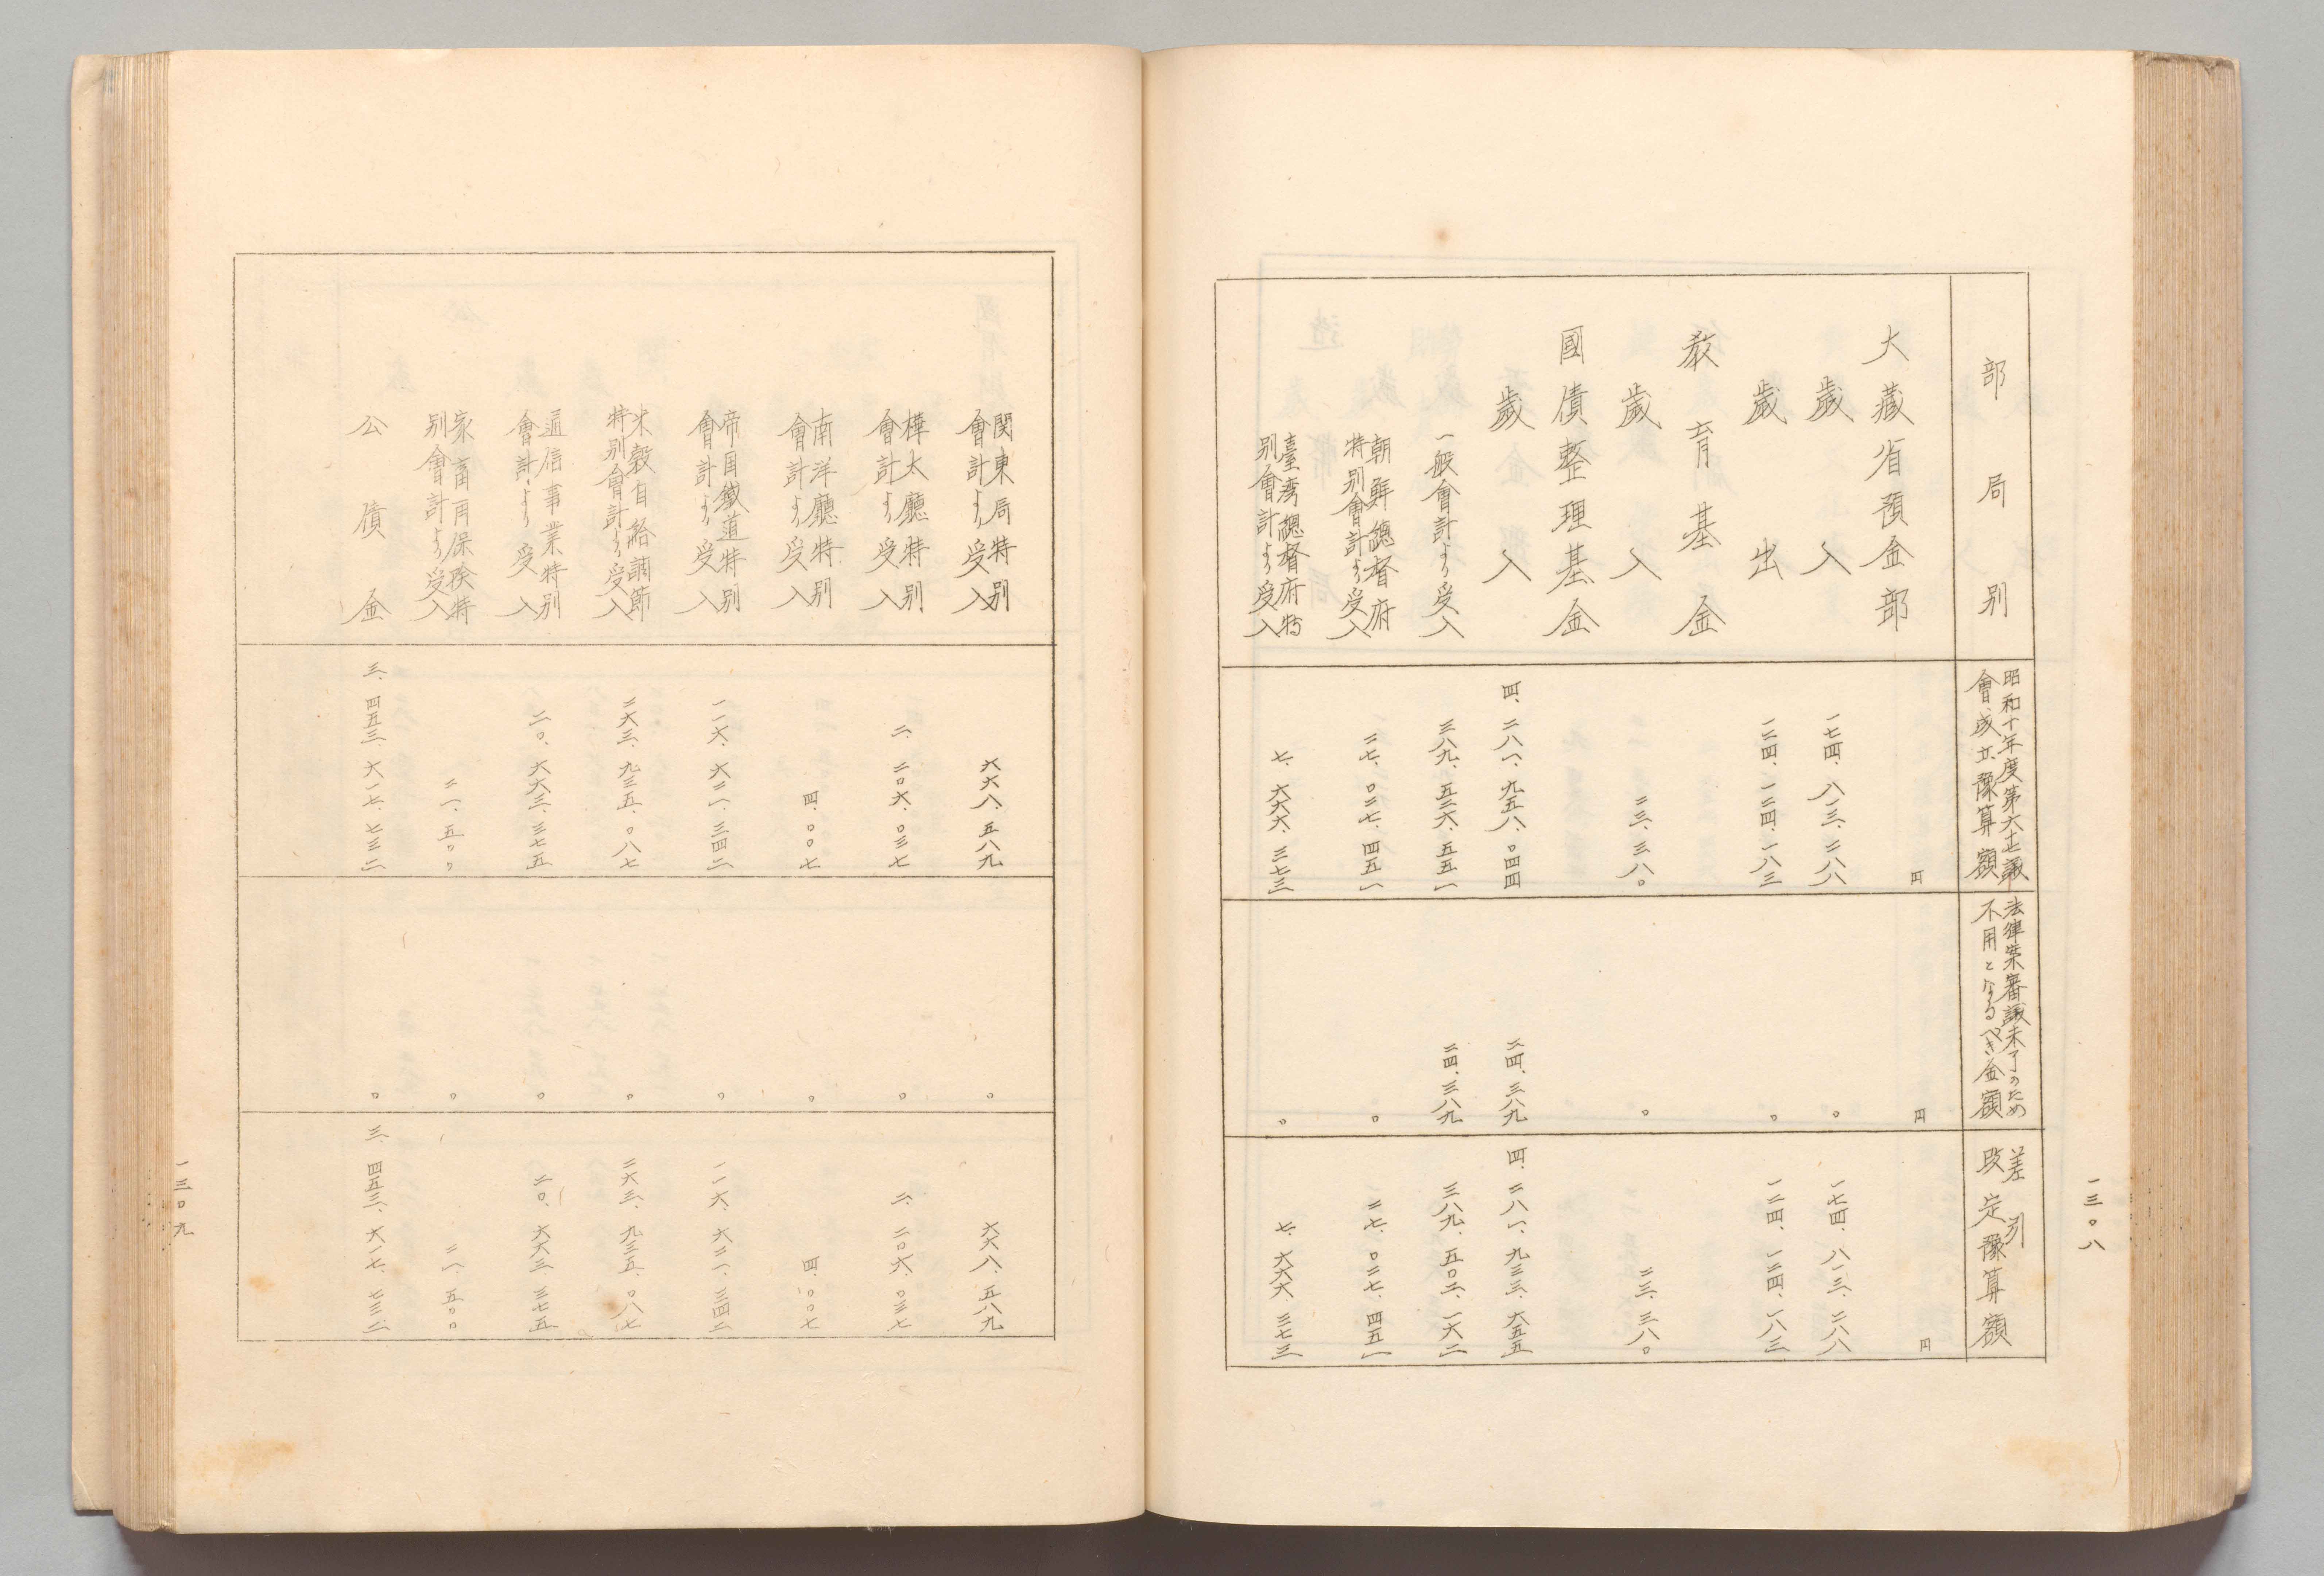 一三〇八
部局別
昭和十年度第六十七議
會成立豫算額
法律案審議未了のため
不用となるべき金額
差引
改定豫算額
大藏省預金部 円 円 円
歲入 一七四、八一三、二八八 〇 一七四、八一三、二八八
歲出 一二四、一二四、一八三 〇 一二四、一二四、一八三
教育基金
歲入 二三、三八〇 〇 二三、三八〇
國債整理基金
歲入 四、二八一、九五八、〇四四 二四、三八九 四、二八一、九三三、六五五
一般會計より受入 三八九、五二六、五五一 二四、三八九 三八九、五〇二、一六二
朝鮮總督府
特別會計より受入 二七、〇二七、四五一 〇 二七、〇二七、四五一
臺湾總督府特
別會計より受入 七、六六六、三七三 〇 七、六六六、三七三
関東局特別
會計より受入 六六八、五八九 〇 六六八、五八九
樺太廳特別
會計より受入 二、二〇六、〇三七 〇 二、二〇六、〇三七
南洋廳特別
會計より受入 四、〇〇七 〇 四、〇〇七
帝国鐵道特別
會計より受入 一一六、六二一、三四二 〇 一一六、六二一、三四二
米穀自給調節
特別會計より受入 二六三、九三五、〇八七 〇 二六三、九三五、〇八七
逓信事業特別
會計より受入 二〇、六六三、三七五 〇 二〇、六六三、三七五
家畜再保険特
別會計より受入 二一、五〇〇 〇 二一、五〇〇
公債金 三、四五三、六一七、七三二 〇 三、四五三、六一七、七三二
一三〇九